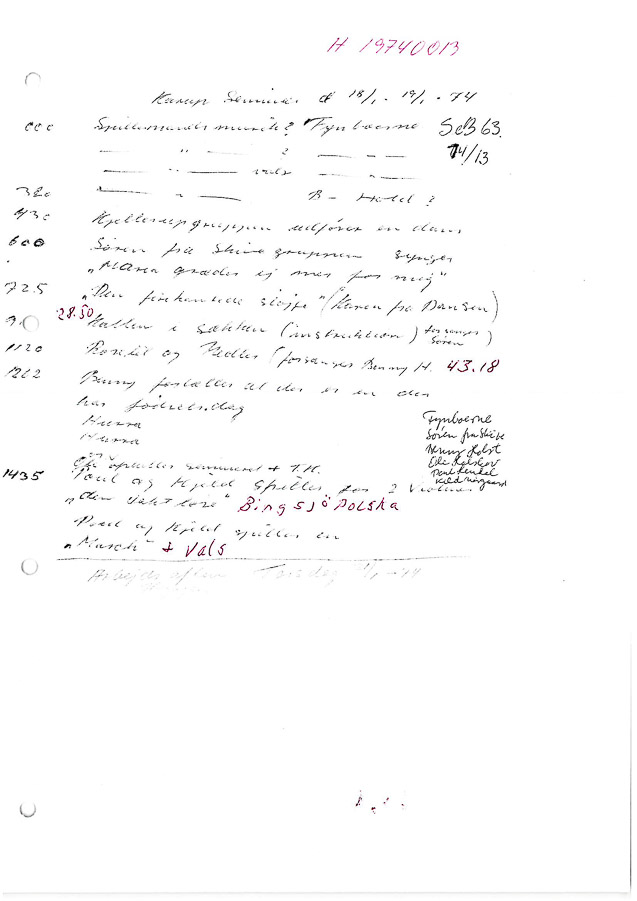 H 19740013
Karup Seminar d 18/1 - 19/1 - 74
000 Spillemandsmusik? Fynboerne SdB 63.
— " — ? — " — 74/13
— " — vals — " —
380 — " — B - Hold ?
430 Kjellerupgruppen udfører en dans
600 Søren fra Skive gruppen synger
"Maria græder ej mer for mig"
725 "Den firkantede sløjfe" (Karen fra Dansen)
28.50 Katten i sækken (instruktion) forsanger Søren
1120 og Pedler (forsanger Benny H. 43.18
1262 Benny fortæller at der er en der
har fødselsdag
Hurra
Hurra
Fynboerne
Søren fra Skive
Benny Holst
1435 Poul og Kjeld spiller for 2 Violiner
"den taktløse" Bingsjö Polska
Poul og Kjeld spiller en
"March" + Vals
Arbejds aften Torsdag